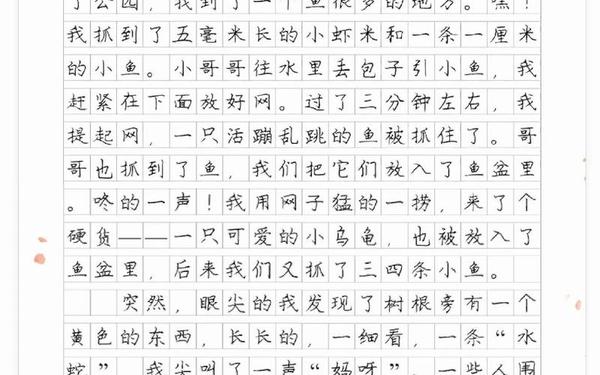 了公园，我到了一个鱼很多的地方。嘿！
我抓到了五毫米长的小虾米和一条一厘米
的小鱼。小哥哥往水里丢包子引小鱼，我
赶紧在下面放好网。过了三分钟左右，我
提起网，一只活蹦乱跳的鱼被抓住了。哥
哥也抓到了鱼，我们把它们放入了鱼盆里
。咚的一声！我用网子猛的一捞，来了个
硬货——一只可爱的小乌龟，也被放入了
鱼盆里，后来我们又抓了三四条小鱼。
突然，眼尖的我发现了树根旁有一个
黄色的东西，长长的，一细看，一条“水
蛇”，我尖叫了一声“妈呀”，一些人围